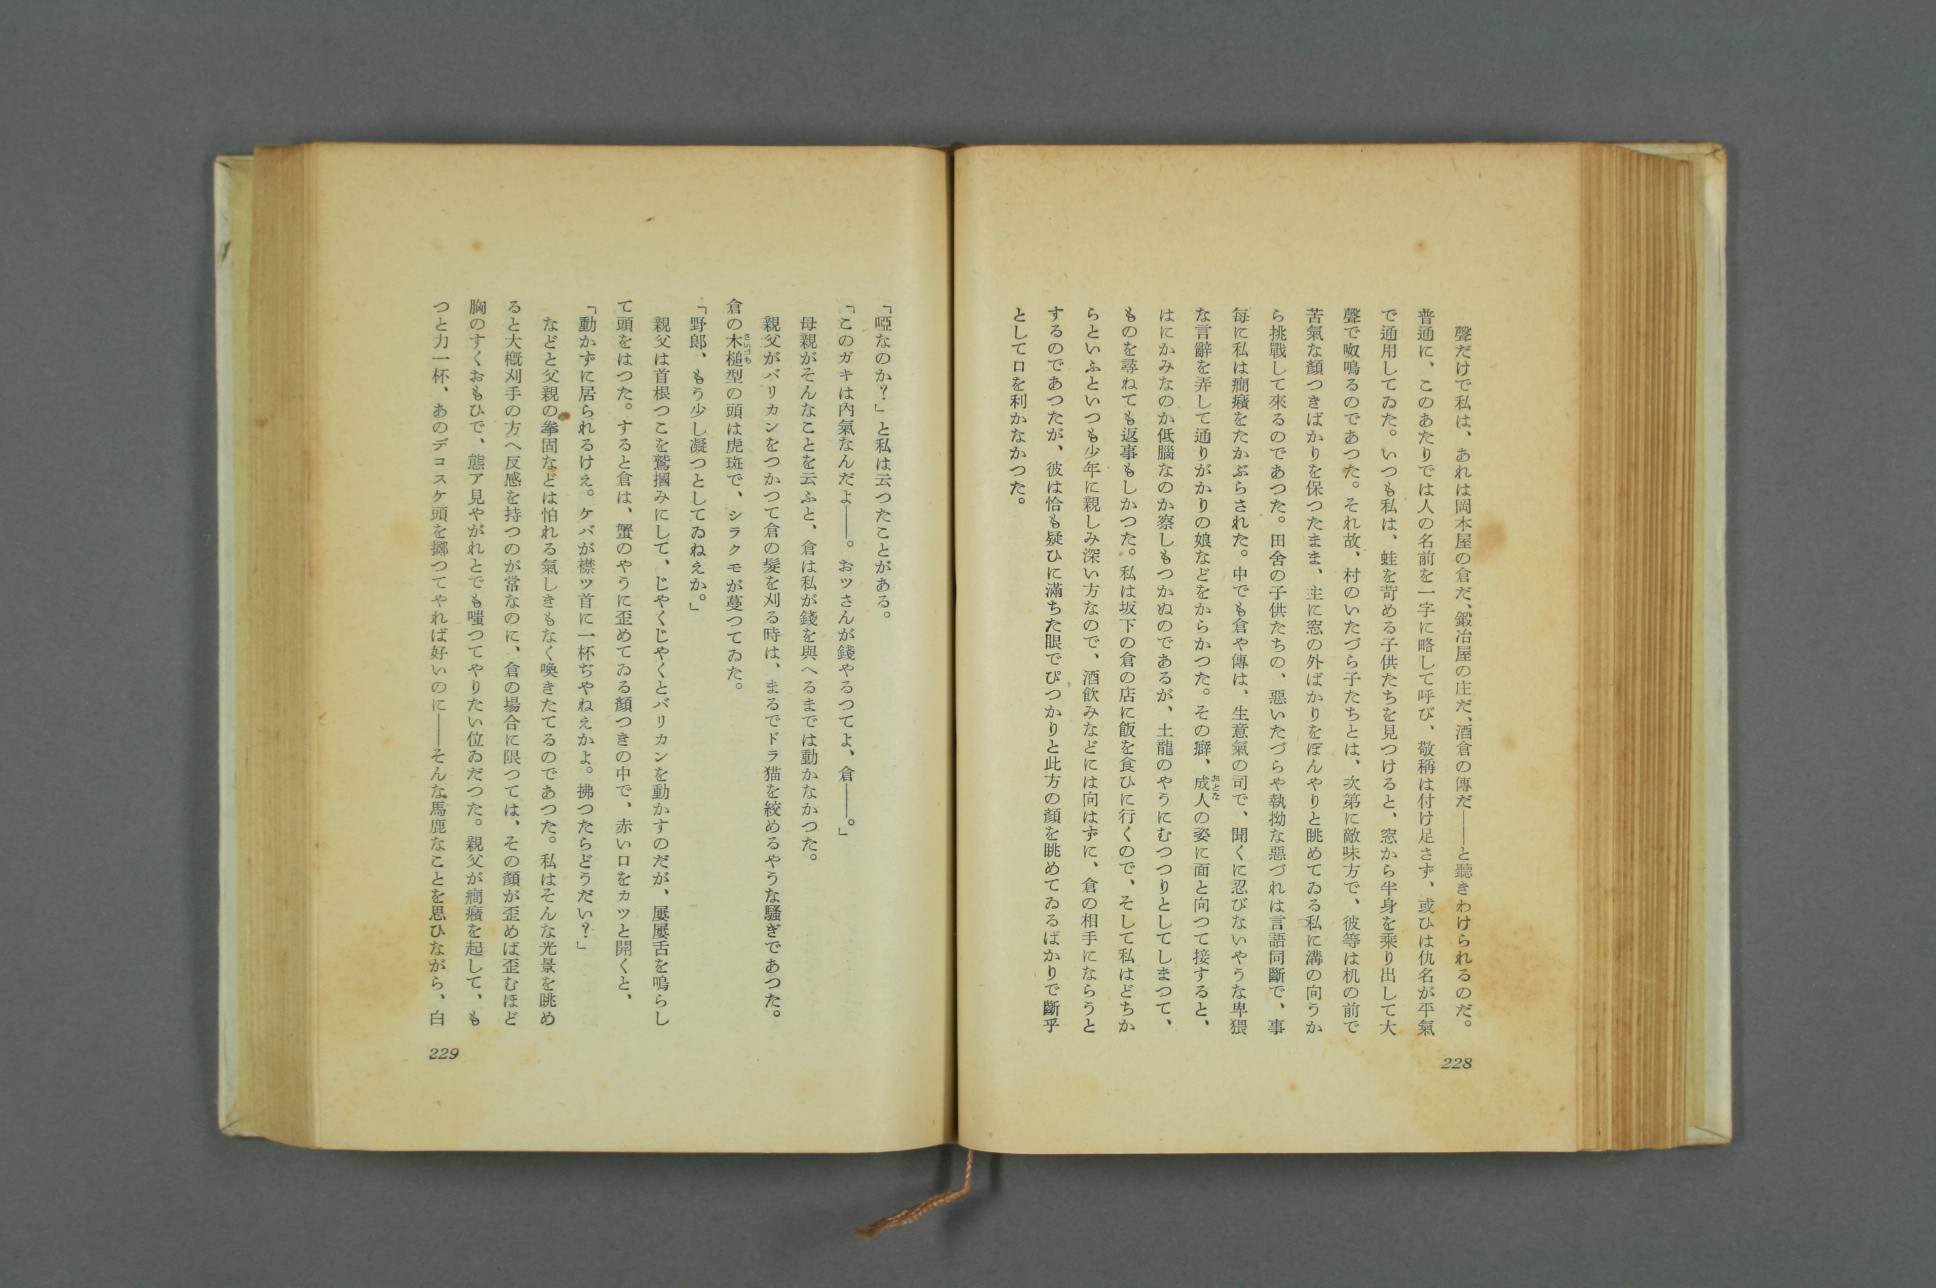 聲だけで私は、あれは岡本屋の倉だ、鍛冶屋の庄だ、酒倉の傳だ――と聽きわけられるのだ。
普通に、このあたりでは人の名前を一字に略して呼び、敬稱は付け足さず、或ひは仇名が平氣
で通用してゐた。いつも私は、蛙を苛める子供たちを見つけると、窓から半身を乘り出して大
聲で呶鳴るのであつた。それ故、村のいたづら子たちとは、次第に敵味方で、彼等は机の前で
苦氣な顏つきばかりを保つたまま、主に窓の外ばかりをぼんやりと眺めてゐる私に溝の向うか
ら挑戰して來るのであつた。田舍の子供たちの、惡いたづらや執拗な惡づれは言語同斷で、事
每に私は癇癪をたかぶらされた。中でも倉や傳は、生意氣の司で、聞くに忍びないやうな卑猥
な言辭を弄して通りがかりの娘などをからかつた。その癖、成人の姿に面と向つて接すると、
おとな
はにかみなのか低腦なのか察しもつかぬのであるが、土龍のやうにむつつりとしてしまつて、
ものを尋ねても返事もしかつた。私は坂下の倉の店に飯を食ひに行くので、そして私はどちか
らといふといつも少年に親しみ深い方なので、酒飲みなどには向はずに、倉の相手にならうと
するのであつたが、彼は恰も疑ひに滿ちた眼でぴつかりと此方の顏を眺めてゐるばかりで斷乎
として口を利かなかつた。
228
「啞なのか？」と私は云つたことがある。
「このガキは內氣なんだよ――。おツさんが錢やるつてよ、倉――。」
母親がそんなことを云ふと、倉は私が錢を與へるまでは動かなかつた。
親父がバリカンをつかつて倉の髮を刈る時は、まるでドラ猫を絞めるやうな騷ぎであつた。
倉の木槌型の頭は虎斑で、シラクモが蔓つてゐた。
さいづち
「野郎、もう少し凝つとしてゐねえか。」
親父は首根つこを鷲摑みにして、じやくじやくとバリカンを動かすのだが、屢屢舌を鳴らし
て頭をはつた。すると倉は、蟹のやうに歪めてゐる顏つきの中で、赤い口をカツと開くと、
「動かずに居られるけぇ。ケバが襟ツ首に一杯ぢやねえかよ。拂つたらどうだい？」
などと父親の拳固などは怕れる氣しきもなく喚きたてるのであつた。私はそんな光景を眺め
ると大槪刈手の方へ反感を持つのが常なのに、倉の場合に限つては、その顏が歪めば歪むほど
胸のすくおもひで、態ア見やがれとでも嗤つてやりたい位ゐだつた。親父が癇癪を起して、も
つと力一杯、あのデコスケ頭を擲つてやれば好いのに――そんな馬鹿なことを思ひながら、白
229